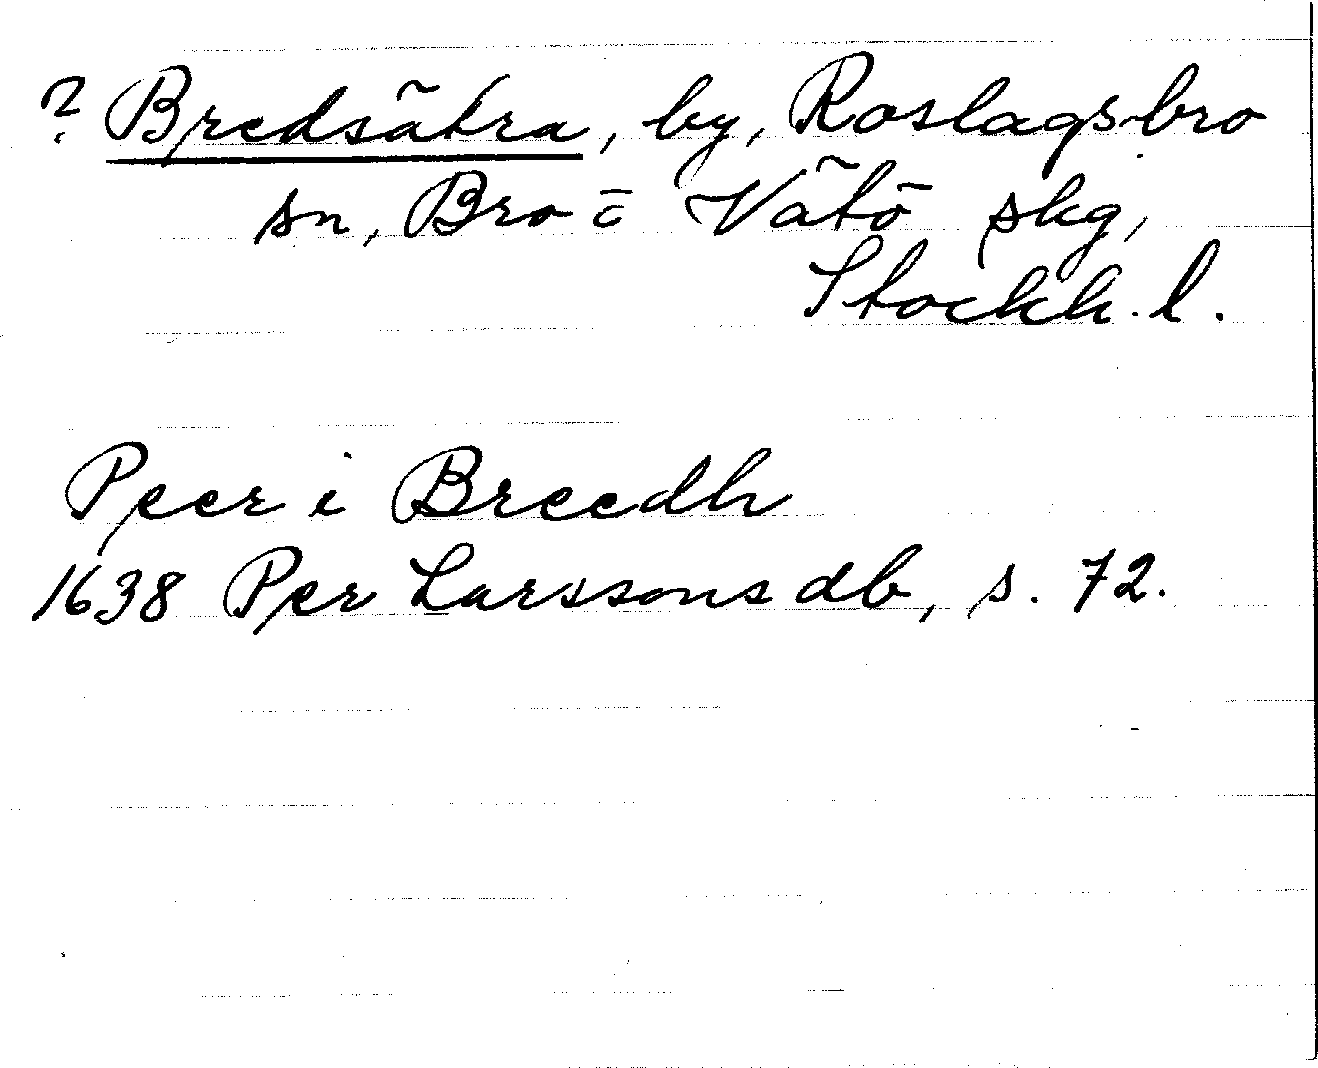 ? Bredsätra, by, Roslagsbro
sn, Bro o Vätö skg,
Stockh. l.
Peer i Breedh
1638 Per Larssons db, s. 72.